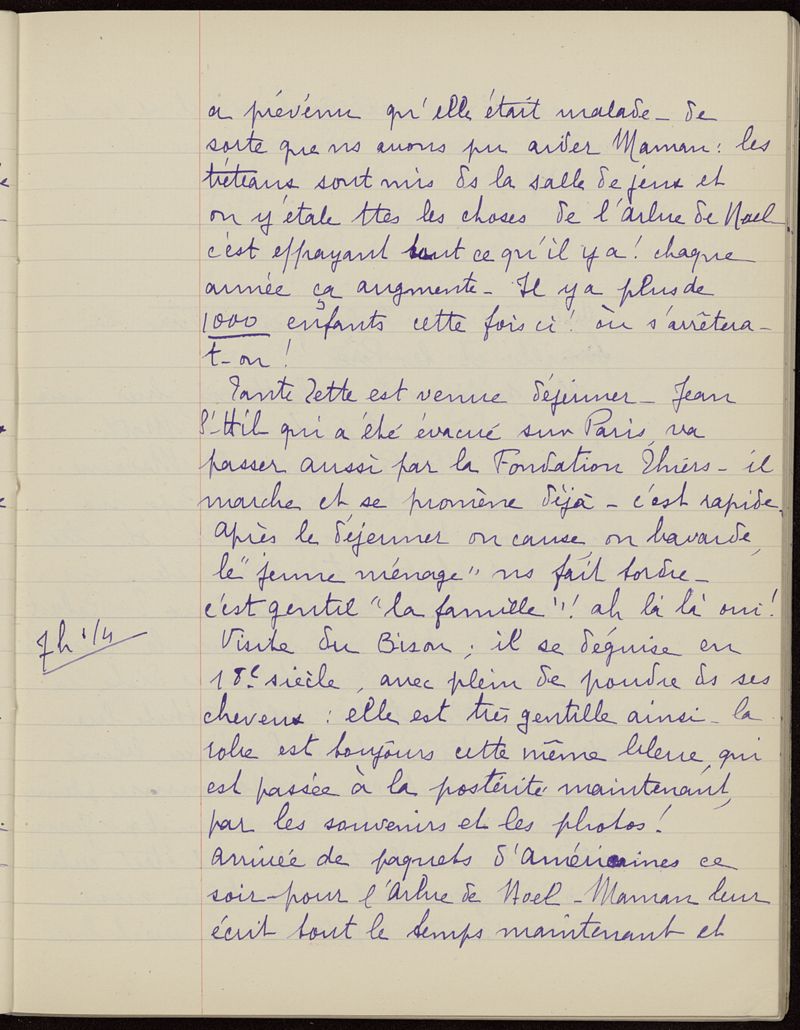 a prévenu qu'elle était malade - de
sorte que ns avons pu aider Maman : les
tréteaux sont mis ds la salle de jeux et
on y étale ttes les choses de l'Arbre de Noel
c'est effrayant tout ce qu'il y a ! chaque
année ça augmente - Il y a plus de
1000 enfants cette fois ci ! où s'arrêtera-
t-on !
Tante Zette est venue déjeuner - Jean
St Hil qui a été évacué sur Paris, va
passer aussi par la Fondation Thiers - il
marche et se promène déjà - c'est rapide.
Après le déjeuner on cause, on bavarde,
le "jeune ménage" ns fait tordre -
c'est gentil "la famille"! ah là là oui !
7h 1/4
Visite du Bison ; il se déguise en
18e siècle, avec plein de poudre ds ses
cheveux : elle est très gentille ainsi - la
robe est toujours cette même bleue, qui
est passée à la postérité maintenant,
par les souvenirs et les photos !
Arrivée de paquets d'américaines ce
soir - pour l'Arbre de Noel - Maman leur
écrit tout le temps maintenant et